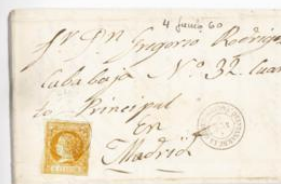 4 Junio 60
Sr Dn Gregorio Rodrig
Caba baja Nº 32 Cuar
to Principal
En
Madrid